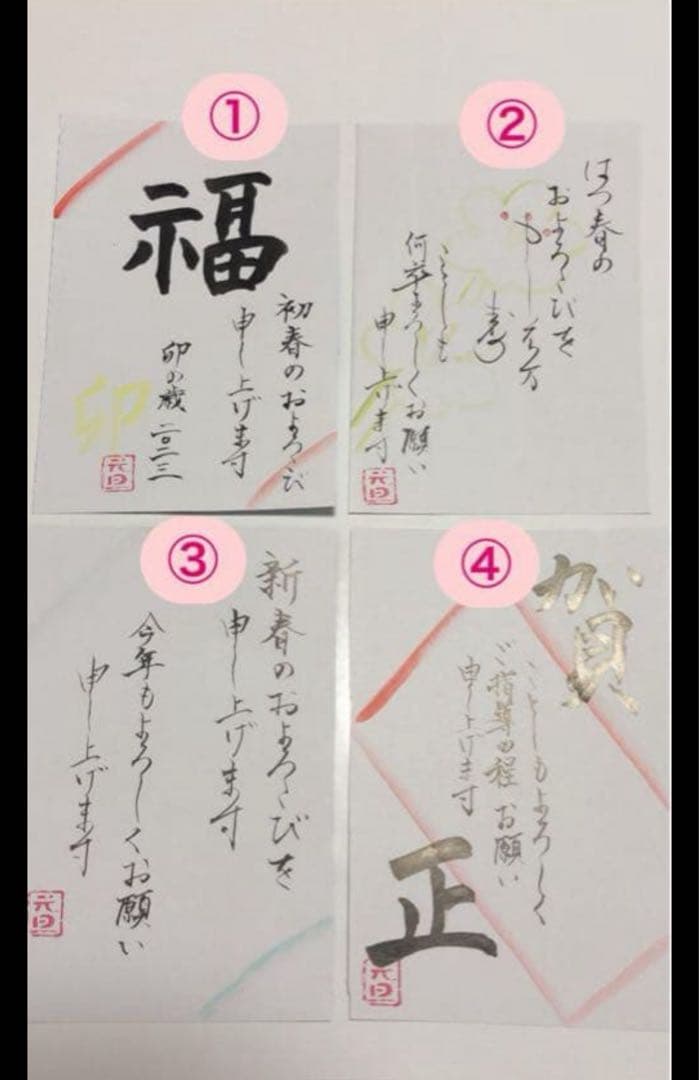 ①
福
初春のおよろこび
申し上げます
卯の歳 二〇二三
卯
元旦
②
はつ春の
およろこびを
寿
ことしも
何卒よろしくお願い
申し上げます
元旦
③
新春のおよろこびを
申し上げます
今年もよろしくお願い
申し上げます
元旦
④
賀
正
ことしもよろしく
ご指導の程 お願い
申し上げます
元旦